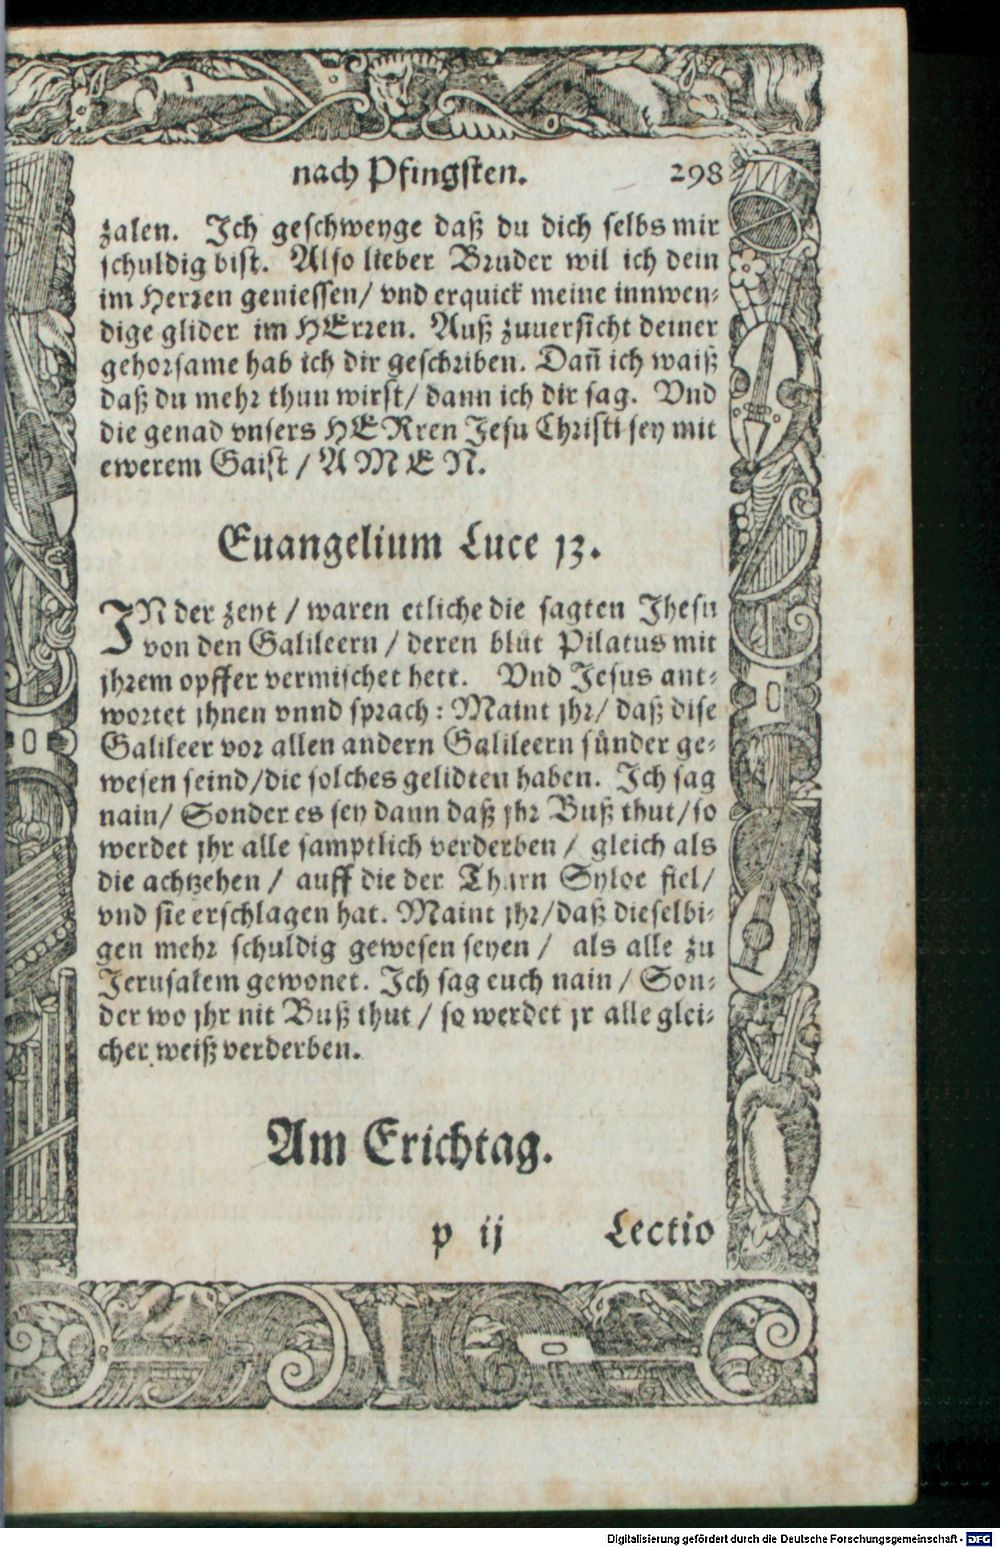 nach Pfingsten. 298
zalen. Ich geschweyge daß du dich selbs mir
schuldig bist. Also lieber Bruder wil ich dein
im Herren geniessen/ vnd erquick meine innwen-
dige glider im HErren. Auß zuuersicht deiner
gehorsame hab ich dir geschriben. Dañ ich waiß
daß du mehr thun wirst/ dann ich dir sag. Vnd
die genad vnsers HERren Jesu Christi sey mit
ewerem Gaist / AMEN.
Euangelium Luce 13.
IN der zeyt / waren etliche die sagten Jhesu
von den Galileern / deren blůt Pilatus mit
jhrem opffer vermischet hett. Vnd Jesus ant-
wortet jhnen vnnd sprach: Maint jhr/ daß dise
Galileer vor allen andern Galileern sünder ge-
wesen seind/die solches gelidten haben. Ich sag
nain/ Sonder es sey dann daß jhr Buß thut/so
werdet jhr alle samptlich verderben / gleich als
die achtzehen / auff die der Thurn Syloe fiel/
vnd sie erschlagen hat. Maint jhr/daß dieselbi-
gen mehr schuldig gewesen seyen / als alle zu
Jerusalem gewonet. Ich sag euch nain / Son-
der wo jhr nit Buß thut / so werdet jr alle glei-
cher weiß verderben.
Am Erichtag.
p ij Lectio
Digitalisierung gefördert durch die Deutsche Forschungsgemeinschaft - DFG